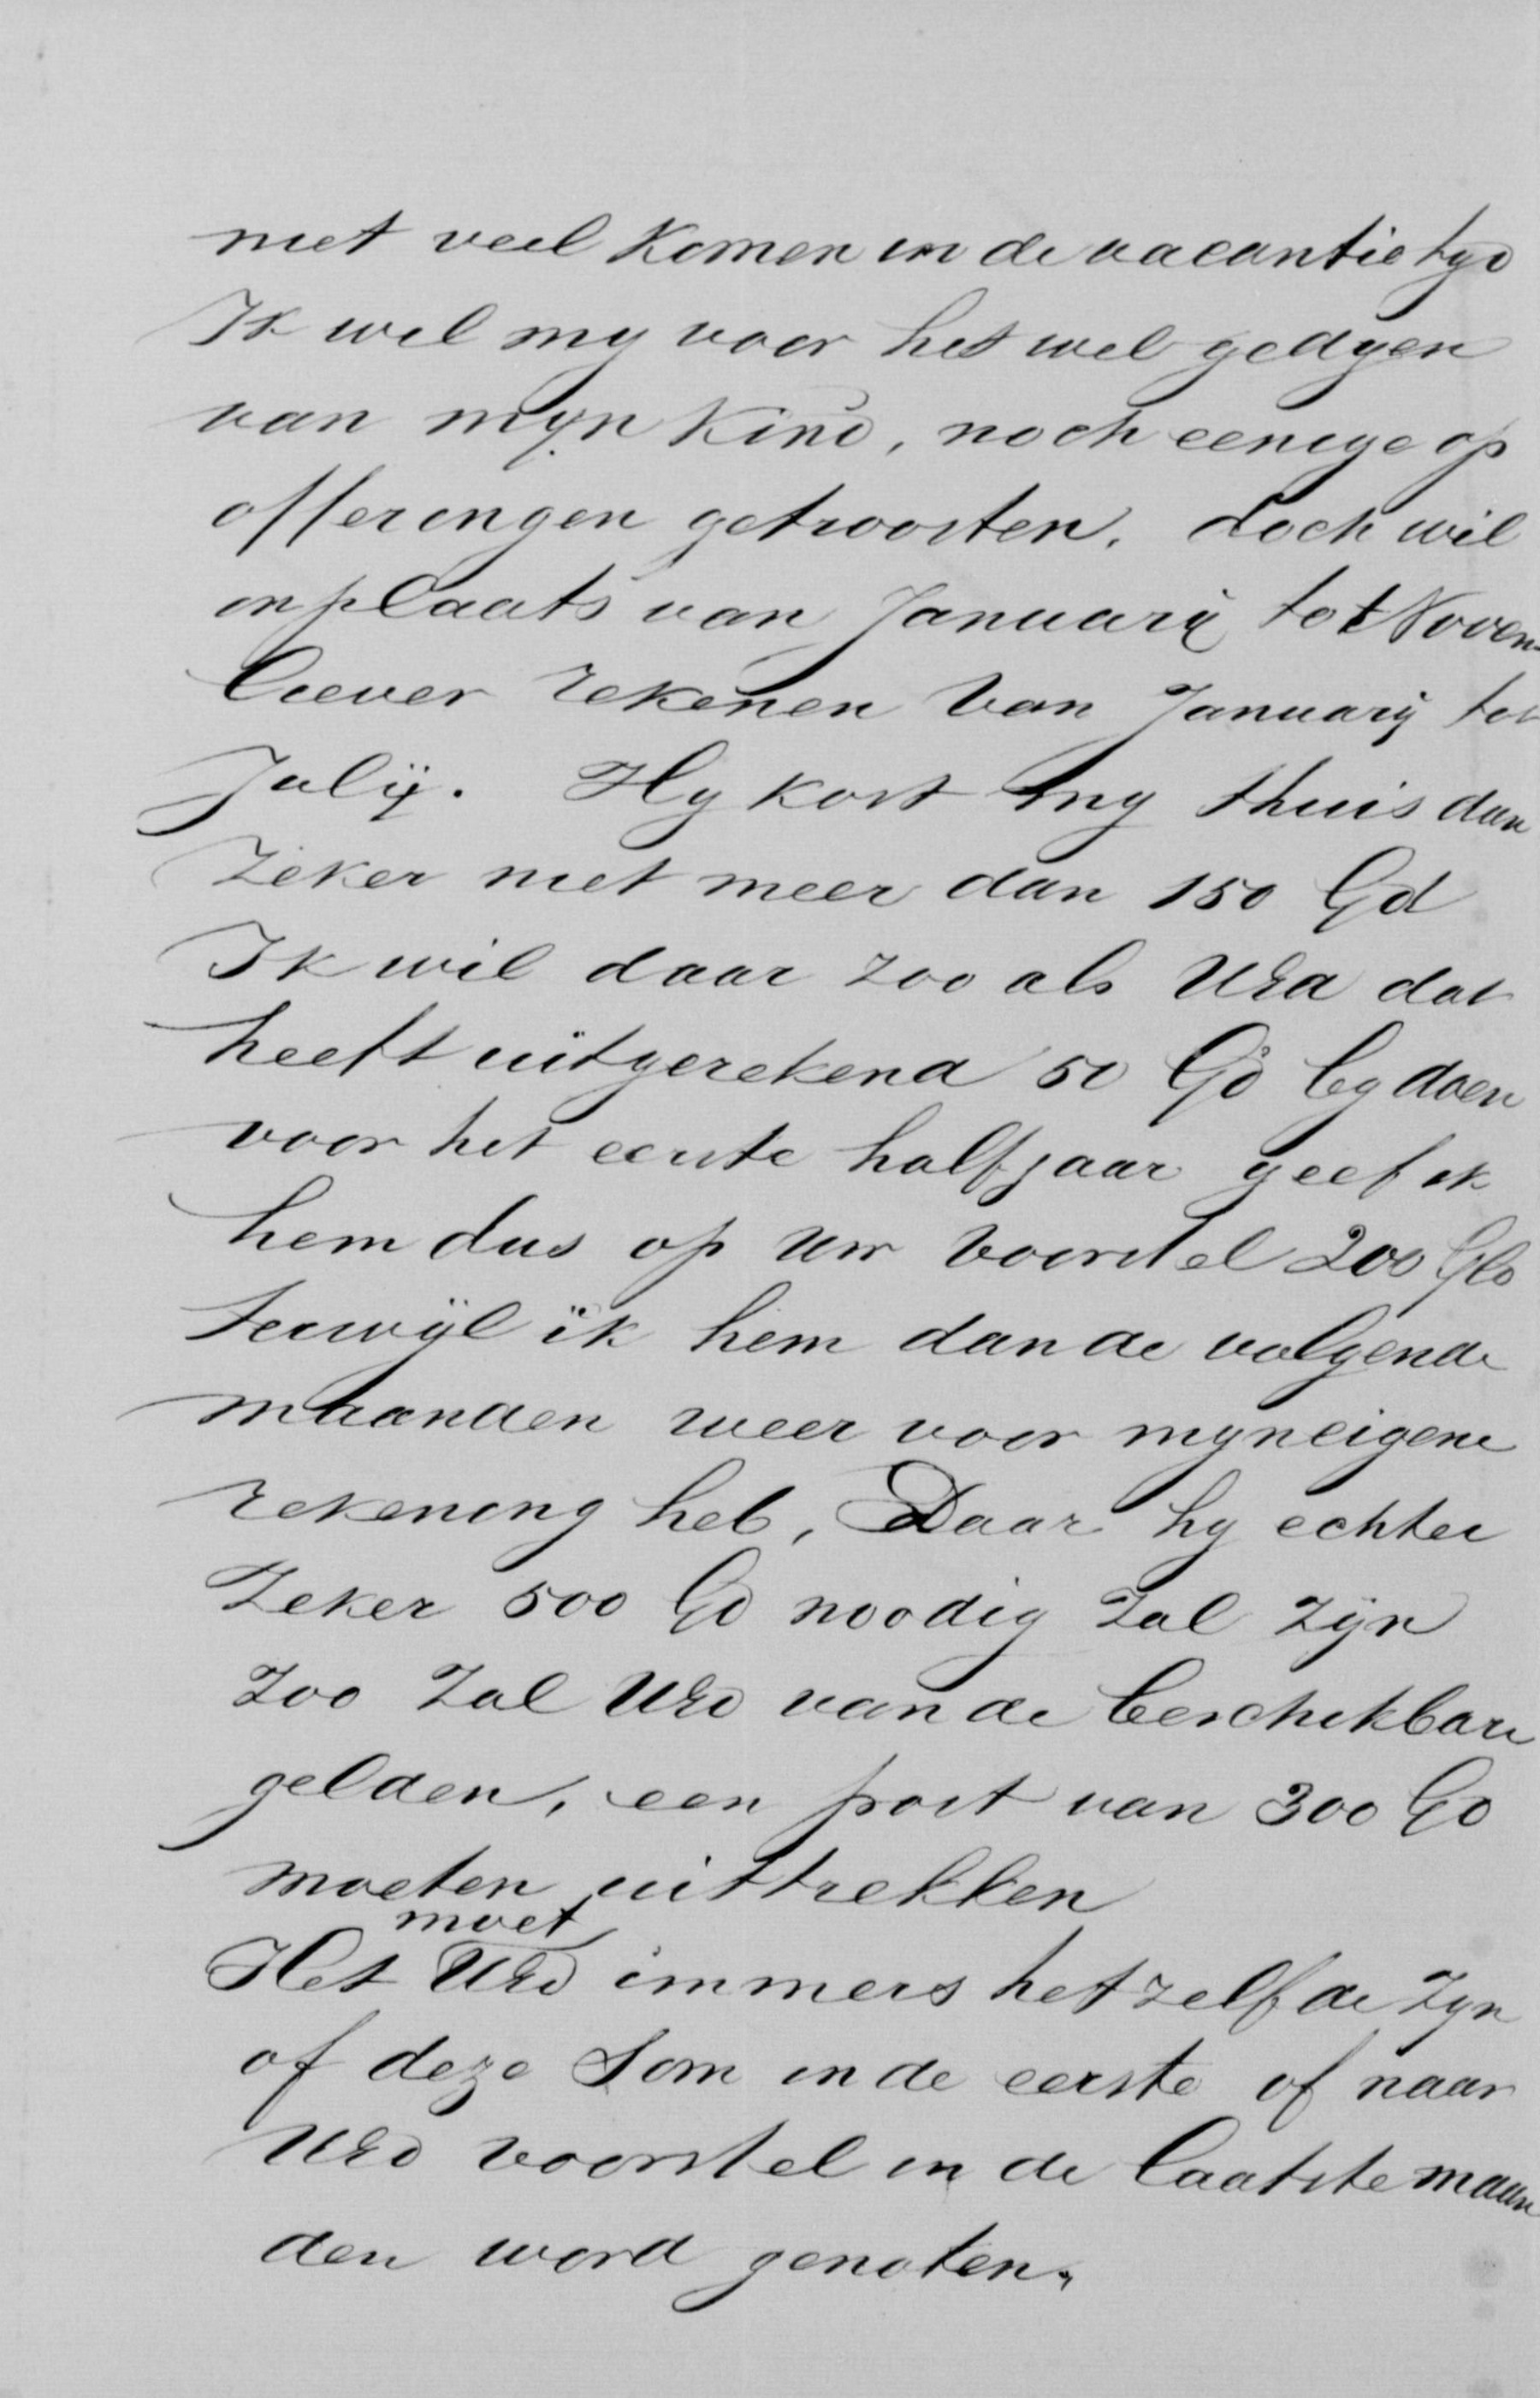 niet veel Komen in de vacantie tyd
Ik wil my voor het wel gedyen
van mijn Kind, noch eenige op
offeringen getroosten. doch wil
inplaats van Januarij tot Novem
liever rekenen van Januarij tot
Julij. Hy kost my thuis dan
Zeker niet meer dan 150 Gd
Ik wil daar zoo als UEd dat
heeft uitgerekend 50 Gd by doen
voor het eerste halfjaar geef ik
hem dus op uw voorstel 200 Gld
Terwijl ik hem dan de volgende
maanden weer voor myn eigene
rekening heb, Daar hy echter
Zeker 500 Gd noodig zal zijn
zoo zal UEd van de beschikbare
gelden, een post van 300 Gd
moeten uittrekken
moet
Het UEd immers het zelfde zyn
of deze Som in de eerste of naar
UEd voorstel in de laatste maan
den word genoten.